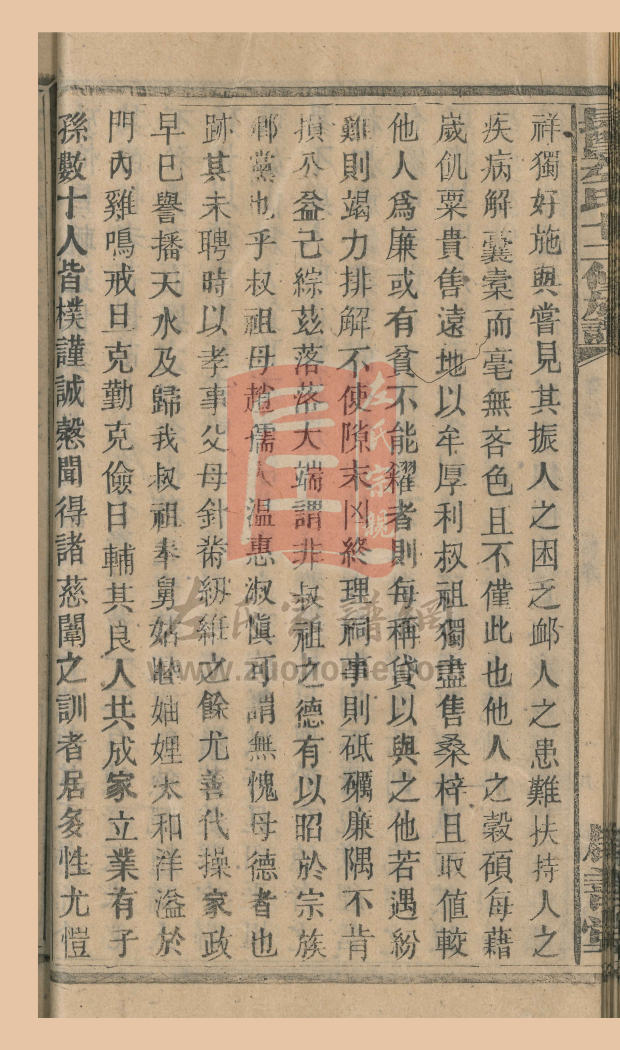 長豐左氏十二修族譜
祥獨好施與嘗見其振人之困乏卹人之患難扶持人之
疾病解囊橐而毫無吝色且不僅此也他人之穀碩每藉
歲飢粟貴售遠地以牟厚利叔祖獨盡售桑梓且取値較
他人爲廉或有貧不能糴者則每稱貸以與之他若遇紛
難則竭力排解不使隙末凶終理祠事則砥礪廉隅不肯
損公益己綜玆落落大端謂非叔祖之德有以昭於宗族
鄉黨也乎叔祖母趙儒人溫惠淑愼可謂無愧母德者也
跡其未聘時以孝事父母針黹紉維之餘尤善代操家政
早已譽播天水及歸我叔祖奉舅姑睦妯娌太和洋溢於
門內雞鳴戒旦克勤克儉日輔其良人共成家立業有子
孫數十人皆樸謹誠慤聞得諸慈闈之訓者居多性尤愷
左氏宗親
左氏家譜網
www.zuohome.co